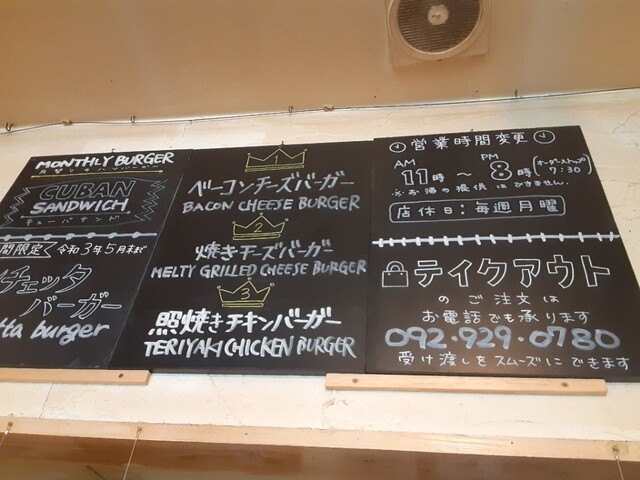 MONTHLY BURGER
月替りのハンバーガー
CUBAN
SANDWICH
キューバサンド
間限定 令和3年5月末まで
チェッタ
バーガー
tta burger
1
ベーコンチーズバーガー
BACON CHEESE BURGER
2
焼きチーズバーガー
MELTY GRILLED CHEESE BURGER
3
照焼きチキンバーガー
TERIYAKI CHICKEN BURGER
営業時間変更
AM PM
11時〜8時(オーダーストップ 7:30)
※お酒の提供はできません.
店休日:毎週月曜
テイクアウト
のご注文は
お電話でも承ります
092-929-0780
受け渡しをスムーズにできます